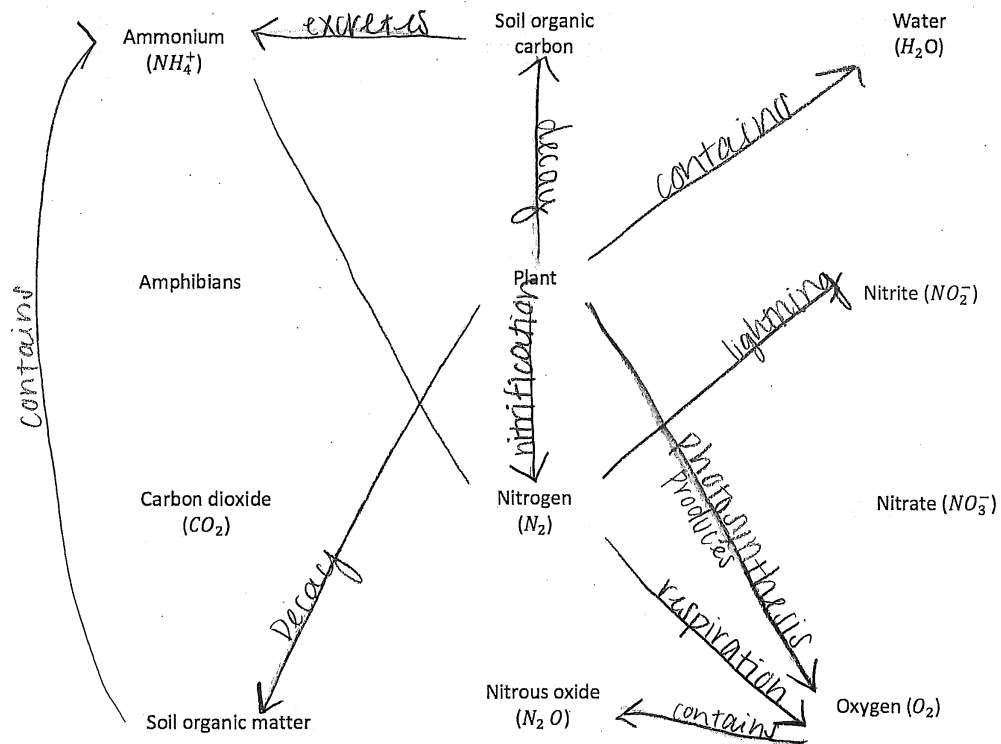 Ammonium
(NH₄⁺)
excretes
Soil organic
carbon
Water
(H₂O)
decay
contains
Amphibians
Plant
lightning
Nitrite (NO₂⁻)
contains
nitrification
Carbon dioxide
(CO₂)
Nitrogen
(N₂)
photosinthesis
produces
Nitrate (NO₃⁻)
Decay
respiration
Soil organic matter
Nitrous oxide
(N₂O)
contains
Oxygen (O₂)